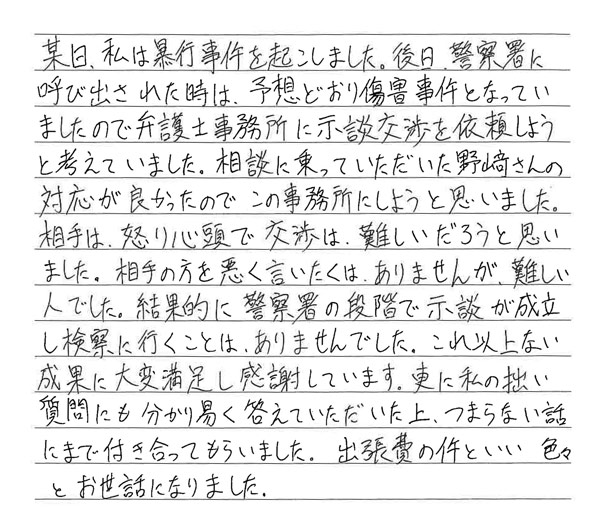 某日、私は暴行事件を起こしました。後日、警察署に
呼び出された時は、予想どおり傷害事件となってい
ましたので弁護士事務所に示談交渉を依頼しよう
と考えていました。相談に乗っていただいた野﨑さんの
対応が良かったのでこの事務所にしようと思いました。
相手は、怒り心頭で交渉は、難しいだろうと思い
ました。相手の方を悪く言いたくは、ありませんが、難しい
人でした。結果的に警察署の段階で示談が成立
し検察に行くことは、ありませんでした。これ以上ない
成果に大変満足し感謝しています。更に私の拙い
質問にも分かり易く答えていただいた上、つまらない話
にまで付き合ってもらいました。出張費の件といい色々
とお世話になりました。